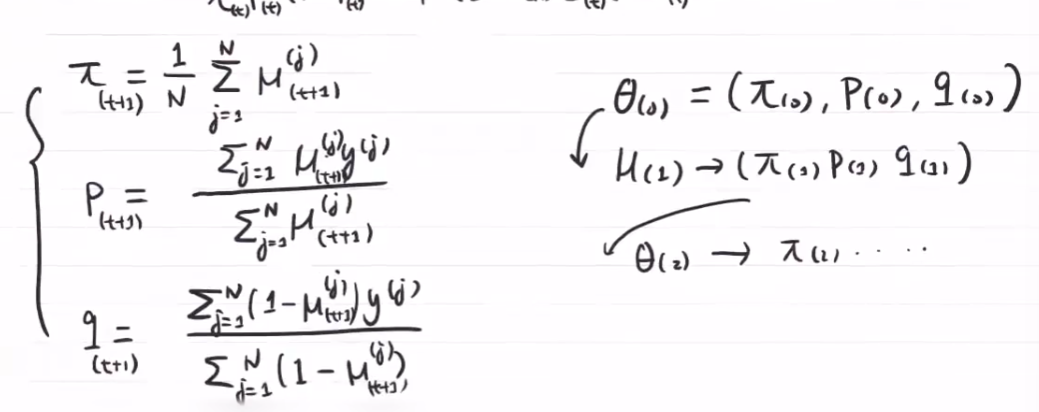 π_(t+1) = 1/N Σ_{j=1}^{N} μ_(t+1)^(j)
P_(t+1) = Σ_{j=1}^{N} μ_(t+1)^(j) y^(j) / Σ_{j=1}^{N} μ_(t+1)^(j)
q_(t+1) = Σ_{j=1}^{N} (1-μ_(t+1)^(j)) y^(j) / Σ_{j=1}^{N} (1-μ_(t+1)^(j))
θ_(0) = (π_(0), P_(0), q_(0))
μ_(1) → (π_(1) P_(1) q_(1))
θ_(2) → π_(2) ....